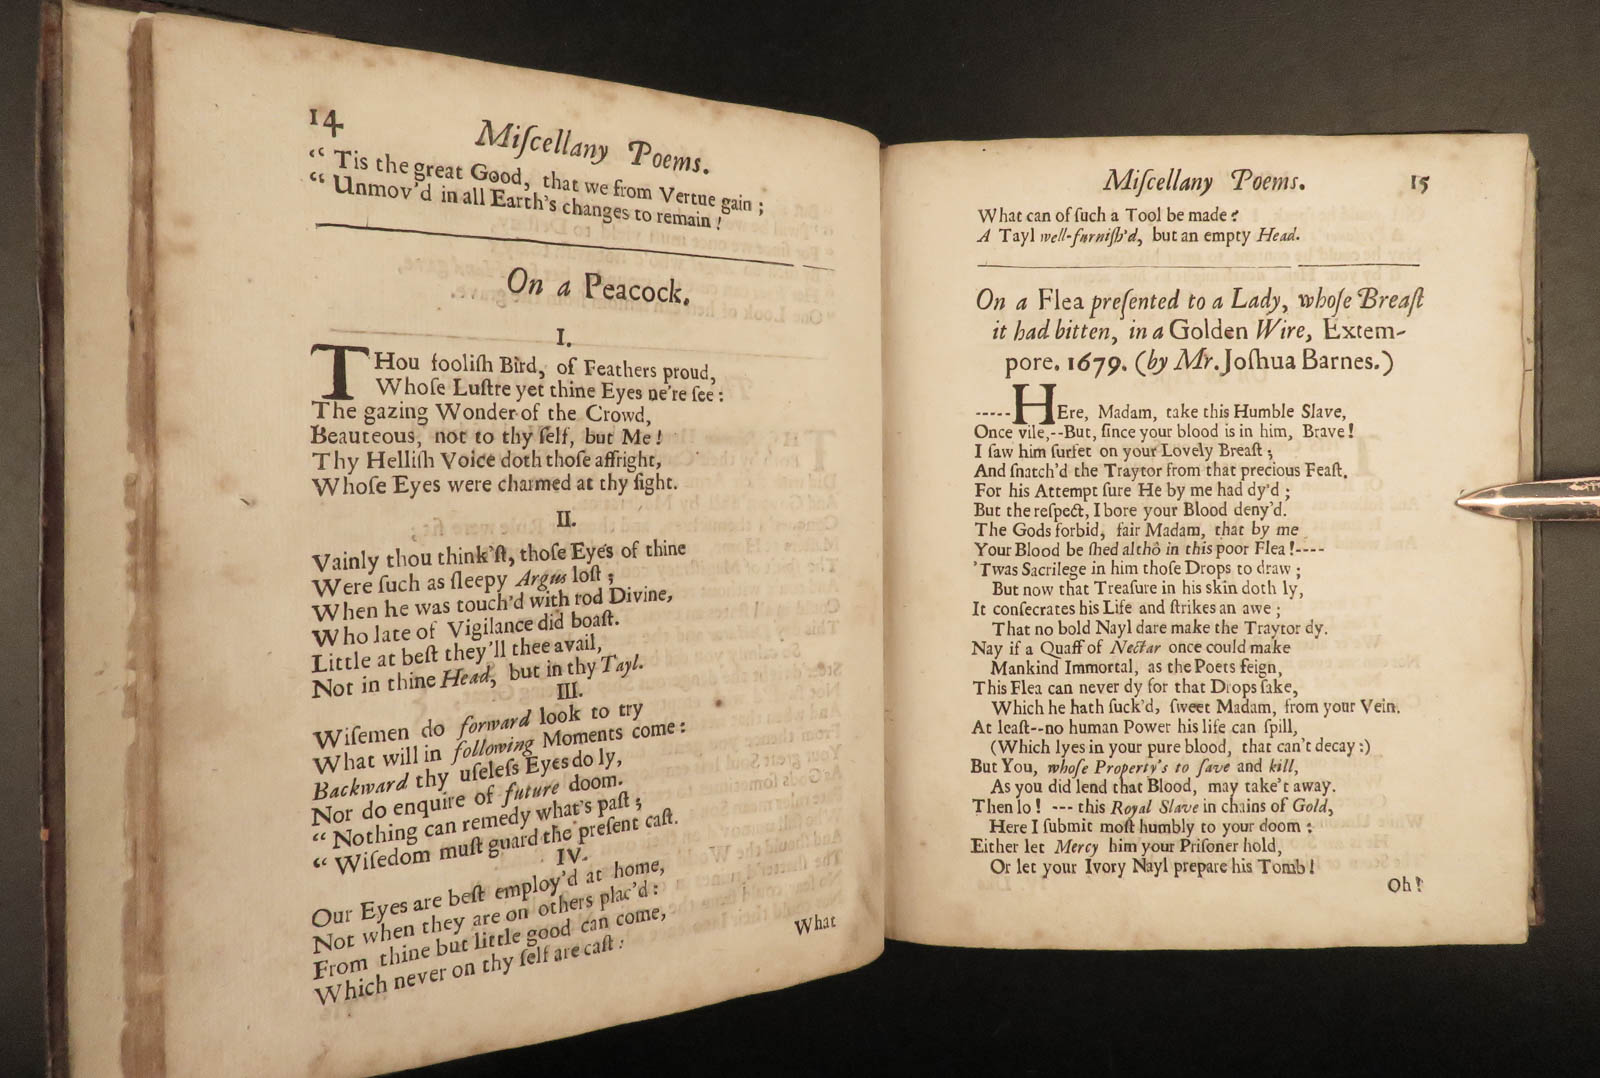 14
Miſcellany Poems.
“ Tis the great Good, that we from Vertue gain ;
“ Unmov'd in all Earth's changes to remain !
On a Peacock.
I.
THou fooliſh Bird, of Feathers proud,
Whoſe Luſtre yet thine Eyes ne're ſee :
The gazing Wonder of the Crowd,
Beauteous, not to thy ſelf, but Me !
Thy Helliſh Voice doth thoſe affright,
Whoſe Eyes were charmed at thy ſight.
II.
Vainly thou think'ſt, thoſe Eyes of thine
Were ſuch as ſleepy Argus loſt ;
When he was touch'd with rod Divine,
Who late of Vigilance did boaſt.
Little at beſt they'll thee avail,
Not in thine Head, but in thy Tayl.
III.
Wiſemen do forward look to try
What will in following Moments come :
Backward thy uſeleſs Eyes do ly,
Nor do enquire of future doom.
“ Nothing can remedy what's paſt ;
“ Wiſedom muſt guard the preſent caſt.
IV.
Our Eyes are beſt employ'd at home,
Not when they are on others plac'd :
From thine but little good can come,
Which never on thy ſelf are caſt :
What
Miſcellany Poems. 15
What can of ſuch a Tool be made ?
A Tayl well-furniſh'd, but an empty Head.
On a Flea preſented to a Lady, whoſe Breaſt
it had bitten, in a Golden Wire, Extem-
pore. 1679. (by Mr. Joſhua Barnes.)
-----HEre, Madam, take this Humble Slave,
Once vile,--But, ſince your blood is in him, Brave !
I ſaw him ſurfet on your Lovely Breaſt ;
And ſnatch'd the Traytor from that precious Feaſt.
For his Attempt ſure He by me had dy'd ;
But the reſpect, I bore your Blood deny'd.
The Gods forbid, fair Madam, that by me
Your Blood be ſhed althô in this poor Flea !----
'Twas Sacrilege in him thoſe Drops to draw ;
But now that Treaſure in his skin doth ly,
It conſecrates his Life and ſtrikes an awe ;
That no bold Nayl dare make the Traytor dy.
Nay if a Quaff of Nectar once could make
Mankind Immortal, as the Poets feign,
This Flea can never dy for that Drops ſake,
Which he hath ſuck'd, ſweet Madam, from your Vein.
At leaſt--no human Power his life can ſpill,
(Which lyes in your pure blood, that can't decay :)
But You, whoſe Property's to ſave and kill,
As you did lend that Blood, may take't away.
Then lo ! --- this Royal Slave in chains of Gold,
Here I ſubmit moſt humbly to your doom :
Either let Mercy him your Priſoner hold,
Or let your Ivory Nayl prepare his Tomb !
Oh !